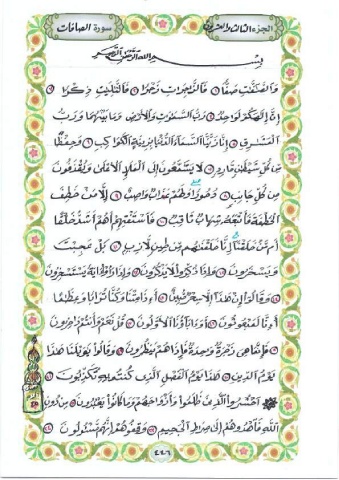 الجزء الثالث والعشرون
سورة الصافات
بسم الله الرحمن الرحيم
وَالصَّٰٓفَّٰتِ صَفًّا ١ فَالزَّٰجِرَٰتِ زَجْرًا ٢ فَالتَّٰلِيَٰتِ ذِكْرًا ٣
إِنَّ إِلَٰهَكُمْ لَوَٰحِدٌ ٤ رَّبُّ السَّمَٰوَٰتِ وَالْأَرْضِ وَمَا بَيْنَهُمَا وَرَبُّ
الْمَشَٰرِقِ ٥ إِنَّا زَيَّنَّا السَّمَآءَ الدُّنْيَا بِزِينَةٍ الْكَوَاكِبِ ٦ وَحِفْظًا
مِّن كُلِّ شَيْطَٰنٍ مَّارِدٍ ٧ لَا يَسَّمَّعُونَ إِلَى الْمَلَإِ الْأَعْلَىٰ وَيُقْذَفُونَ
مِن كُلِّ جَانِبٍ ٨ دُحُورًا وَلَهُمْ عَذَابٌ وَاصِبٌ ٩ إِلَّا مَنْ خَطِفَ
الْخَطْفَةَ فَأَتْبَعَهُ شِهَابٌ ثَاقِبٌ ١٠ فَاسْتَفْتِهِمْ أَهُمْ أَشَدُّ خَلْقًا
أَم مَّنْ خَلَقْنَا إِنَّا خَلَقْنَٰهُم مِّن طِينٍ لَّازِبٍ ١١ بَلْ عَجِبْتَ
وَيَسْخَرُونَ ١٢ وَإِذَا ذُكِّرُوا لَا يَذْكُرُونَ ١٣ وَإِذَا رَأَوْا ءَايَةً يَسْتَسْخِرُونَ
١٤ وَقَالُوا إِنْ هَٰذَا إِلَّا سِحْرٌ مُّبِينٌ ١٥ أَءِذَا مِتْنَا وَكُنَّا تُرَابًا وَعِظَٰمًا
أَءِنَّا لَمَبْعُوثُونَ ١٦ أَوَءَابَآؤُنَا الْأَوَّلُونَ ١٧ قُلْ نَعَمْ وَأَنتُمْ دَٰخِرُونَ
١٨ فَإِنَّمَا هِيَ زَجْرَةٌ وَٰحِدَةٌ فَإِذَا هُمْ يَنظُرُونَ ١٩ وَقَالُوا يَٰوَيْلَنَا هَٰذَا
يَوْمُ الدِّينِ ٢٠ هَٰذَا يَوْمُ الْفَصْلِ الَّذِي كُنتُم بِهِ تُكَذِّبُونَ ٢١
احْشُرُوا الَّذِينَ ظَلَمُوا وَأَزْوَٰجَهُمْ وَمَا كَانُوا يَعْبُدُونَ ٢٢ مِن دُونِ
اللَّهِ فَاهْدُوهُمْ إِلَىٰ صِرَٰطِ الْجَحِيمِ ٢٣ وَقِفُوهُمْ إِنَّهُم مَّسْئُولُونَ ٢٤
٤٤٦